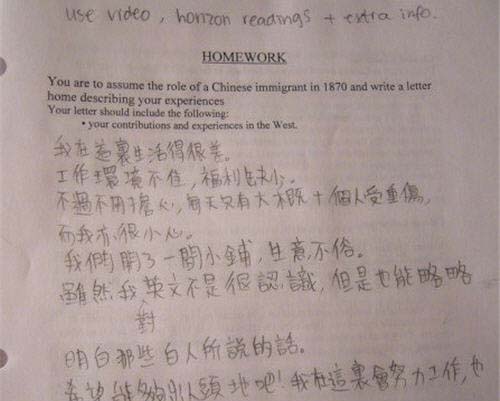 use video, horizon readings + extra info.
HOMEWORK
You are to assume the role of a Chinese immigrant in 1870 and write a letter
home describing your experiences
Your letter should include the following:
• your contributions and experiences in the West.
我在這裏生活得很差。
工作環境不佳，福利缺少。
不過不用擔心，每天只有大概十個人受重傷，
而我亦很小心。
我們開了一間小鋪，生意不俗。
雖然我對英文不是很認識，但是也能略略
明白那些白人所說的話。
希望能夠出人頭地吧！我在這裏會努力工作，也